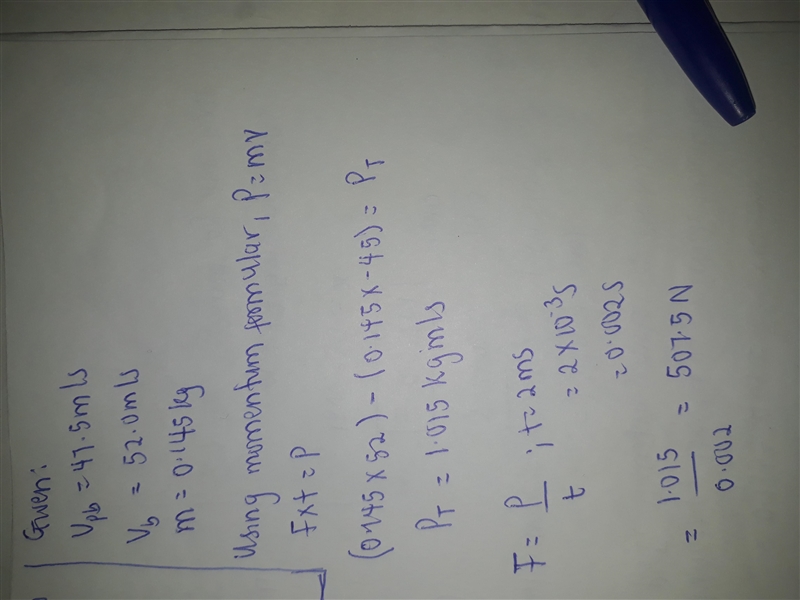 Given:
Vpb = 47.5m/s
Vb = 52.0m/s
m = 0.145kg
Using momentum fomular, P=mv
F x t = P
(0.145 x 52) - (0.145 x -45) = PT
PT = 1.015 kgm/s
F = P/t ; t = 2ms
= 2 x 10^-3 s
= 0.002s
= 1.015/0.002 = 507.5 N